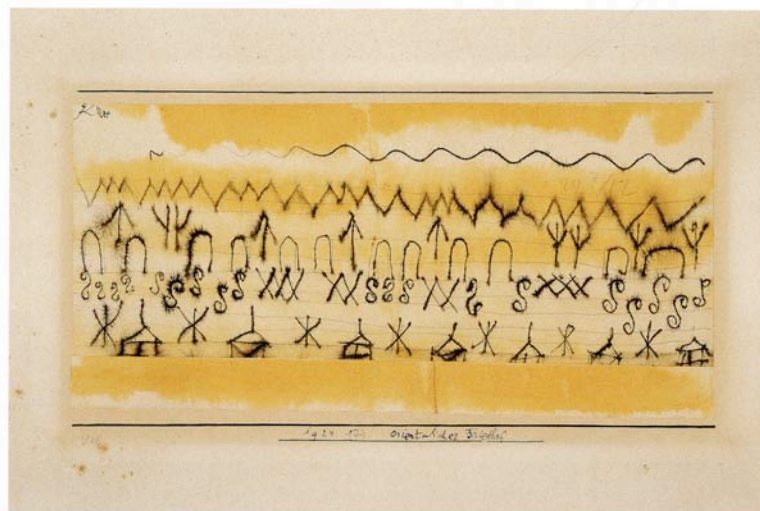 Klee
1924 174 orientalischer Friedhof